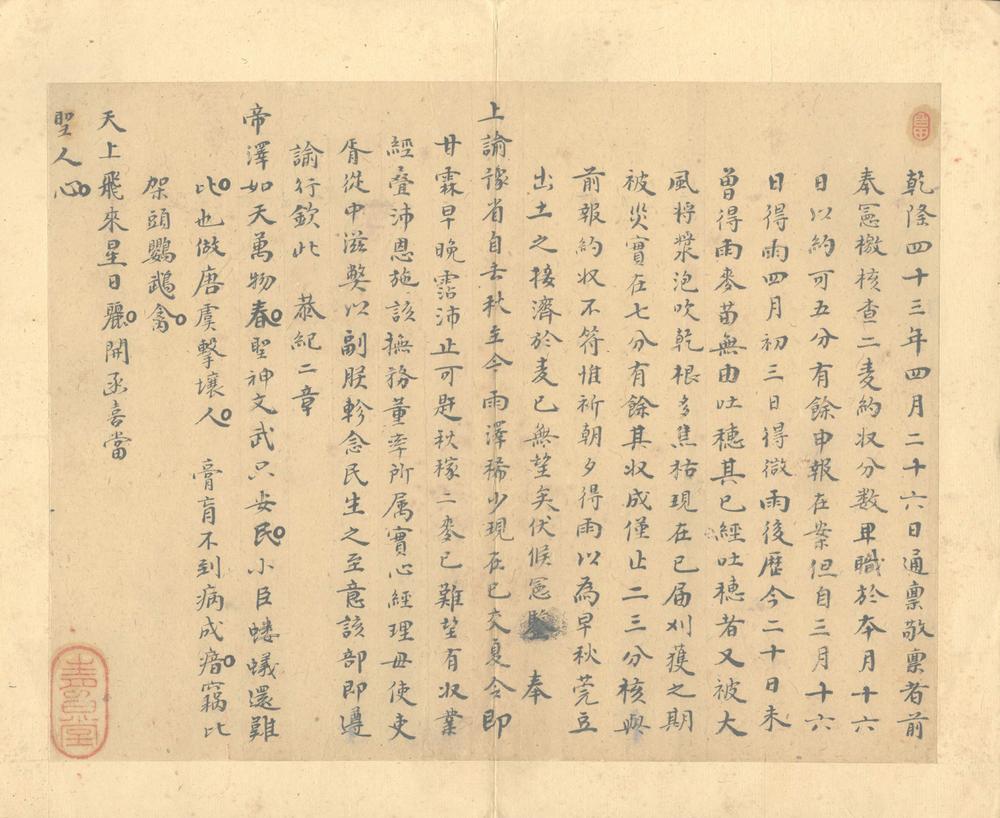 乾隆四十三年四月二十六日通禀敬禀者前
奉憲檄核查二麦約収分数卑職於本月十六
日以約可五分有餘申報在案但自三月十六
日得雨四月初三日得微雨後歷今二十日未
曽得雨麥苗無由吐穗其已經吐穗者又被大
風将漿泡吹乾根多焦枯現在已届刈獲之期
被災實在七分有餘其収成僅止二三分核與
前報約収不符惟祈朝夕得雨以為早秋莞豆
出土之接濟於麦已無望矣伏候憲 奉
上諭豫省自去秋至今雨澤稀少現在已交夏令即
甘霖早晚霑沛止可趕秋稼二麥已難望有収業
經疊沛恩施該撫務董率所属實心經理毋使吏
胥從中滋獘以副朕軫念民生之至意該部即遵
諭行欽此 恭紀二章
帝澤如天萬物春聖神文武只安民小臣螻蟻還難
比也做唐虞擊壤人 膏肓不到病成瘖竊比
架頭鸚鵡禽
天上飛來星日麗開函喜當
聖人心